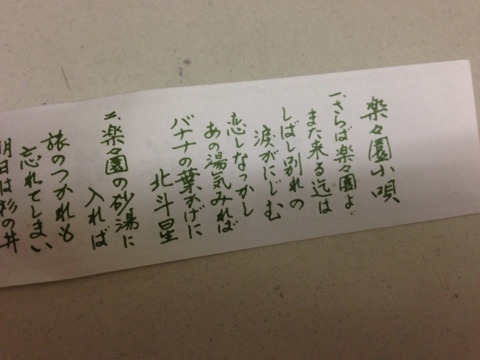 楽々園小唄
一、さらば楽々園よ
また来る迄は
しばし別れの
涙がにじむ
恋しなつかし
あの湯気みれば
バナナの葉かげに
北斗星
二、楽々園の砂湯に
入れば
旅のつかれも
忘れてしまい
明日は杉の井